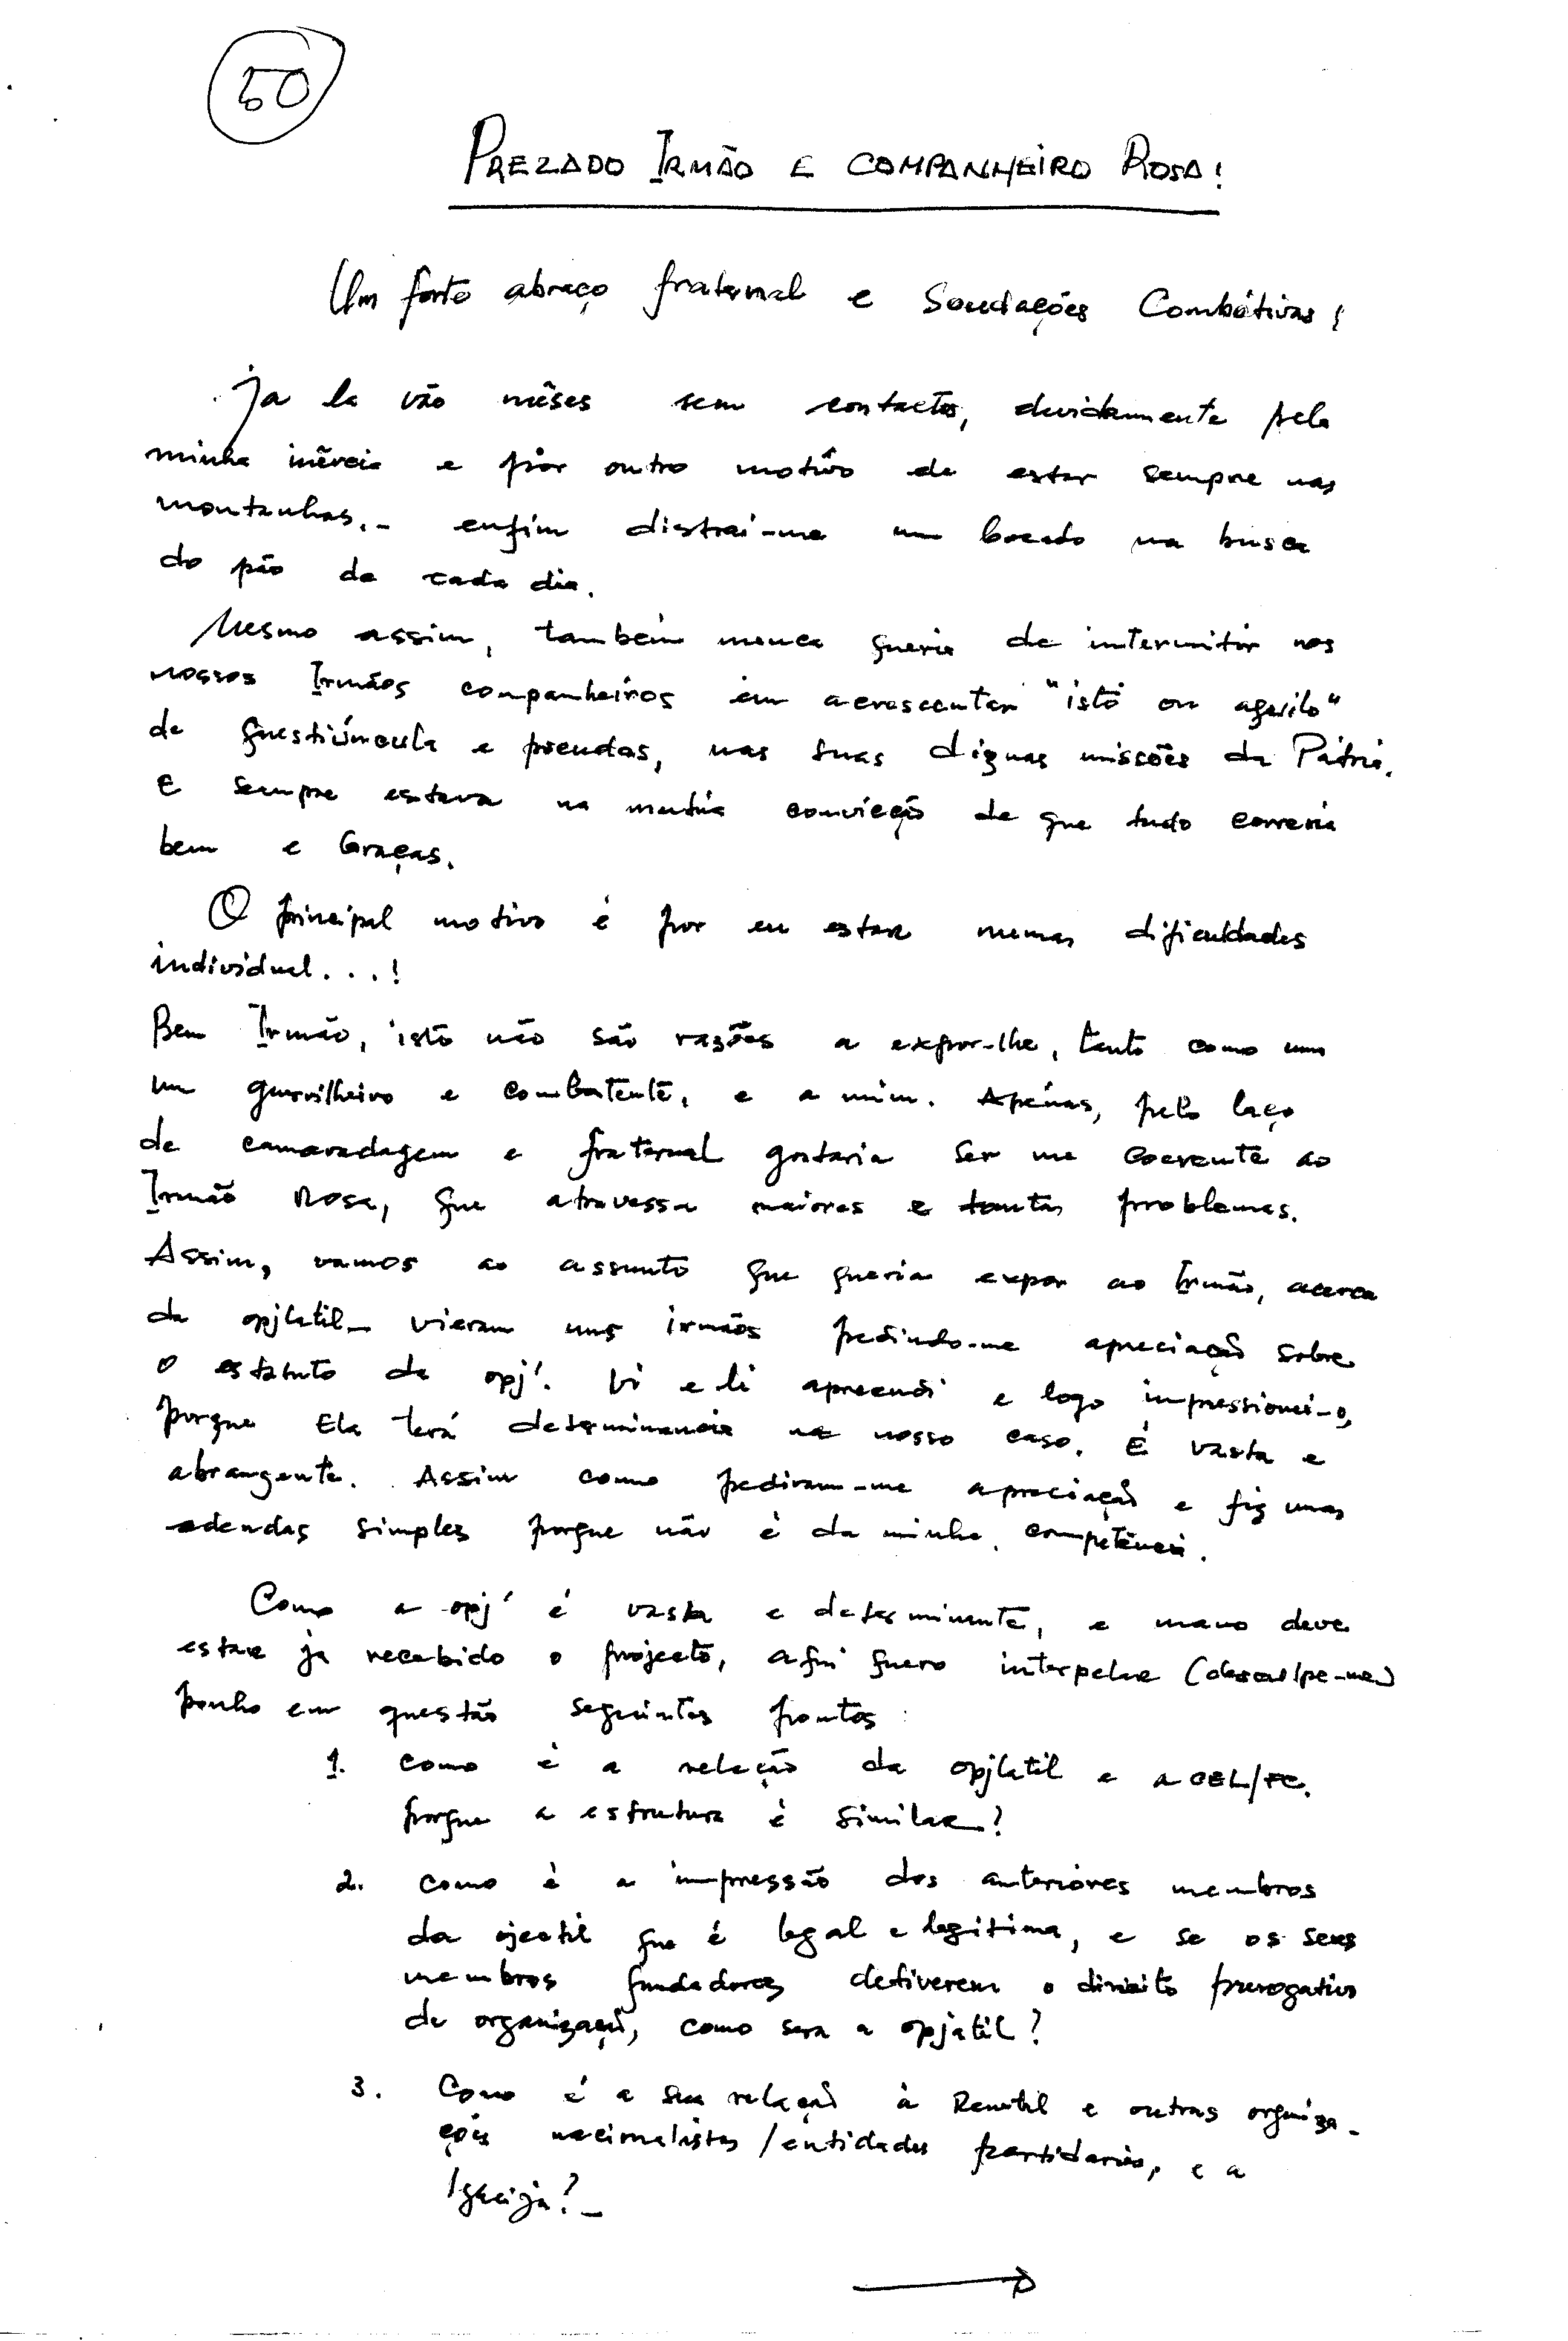 50
PREZADO IRMÃO E COMPANHEIRO ROSA!
Um forte abraço fraternal e Saudações Combativas!
Ja la vão mêses sem contactos, devidamente pela
minha inércia e por outro motivo de estar sempre nas
montanhas. - enfim distrai-me um bocado na busca
do pão de cada dia.
Mesmo assim, também nunca queria de intermitir nos
nossos Irmãos companheiros em acrescentar "isto ou aquilo"
de questiúncula e pseudas, nas suas dignas missões da Pátria.
E sempre estava na mutúa convicção de que tudo correria
bem e Graças.
O principal motivo é por eu estar numas dificuldades
individual...!
Bem Irmão, isto não são razões a expor-lhe, tanto como um
um guerrilheiro e combatente, e a mim. Apénas, pelo laço
de camaradagem e fraternal gostaria ser me coerente ao
Irmão Rosa, que atravessa maiores e tantas problemas.
Assim, vamos ao assunto que queria expor ao Irmão, acerca
da opjlatil - vieram uns irmãos pedindo-me apreciação sobre
o estatuto de opj'. Vi e li apreendi e logo impressionei-o,
porque Ela terá determinancia no nosso caso. É vasta e
abrangente. Assim como pediram-me apreciação e fiz umas
adendas simples porque não é da minha competência.
Como a opj' é vasta e determinante, e mano deve
estar ja recebido o projecto, aqui quero interpelar (desculpe-me)
ponho em questão seguintes pontos:
1. como é a relação da opjlatil e a OEL/FC.
porque a estrutura é similar?
2. como é a impressão dos anteriores membros
da ojectil que é legal e legitima, e se os seus
membros fundadores detiverem o direito prerogativo
de organização, como sera a opjatil?
3. Como é a sua relação à Renetil e outras organiza-
ções nacionalistas/entidades partidarias, e a
Igreija? -